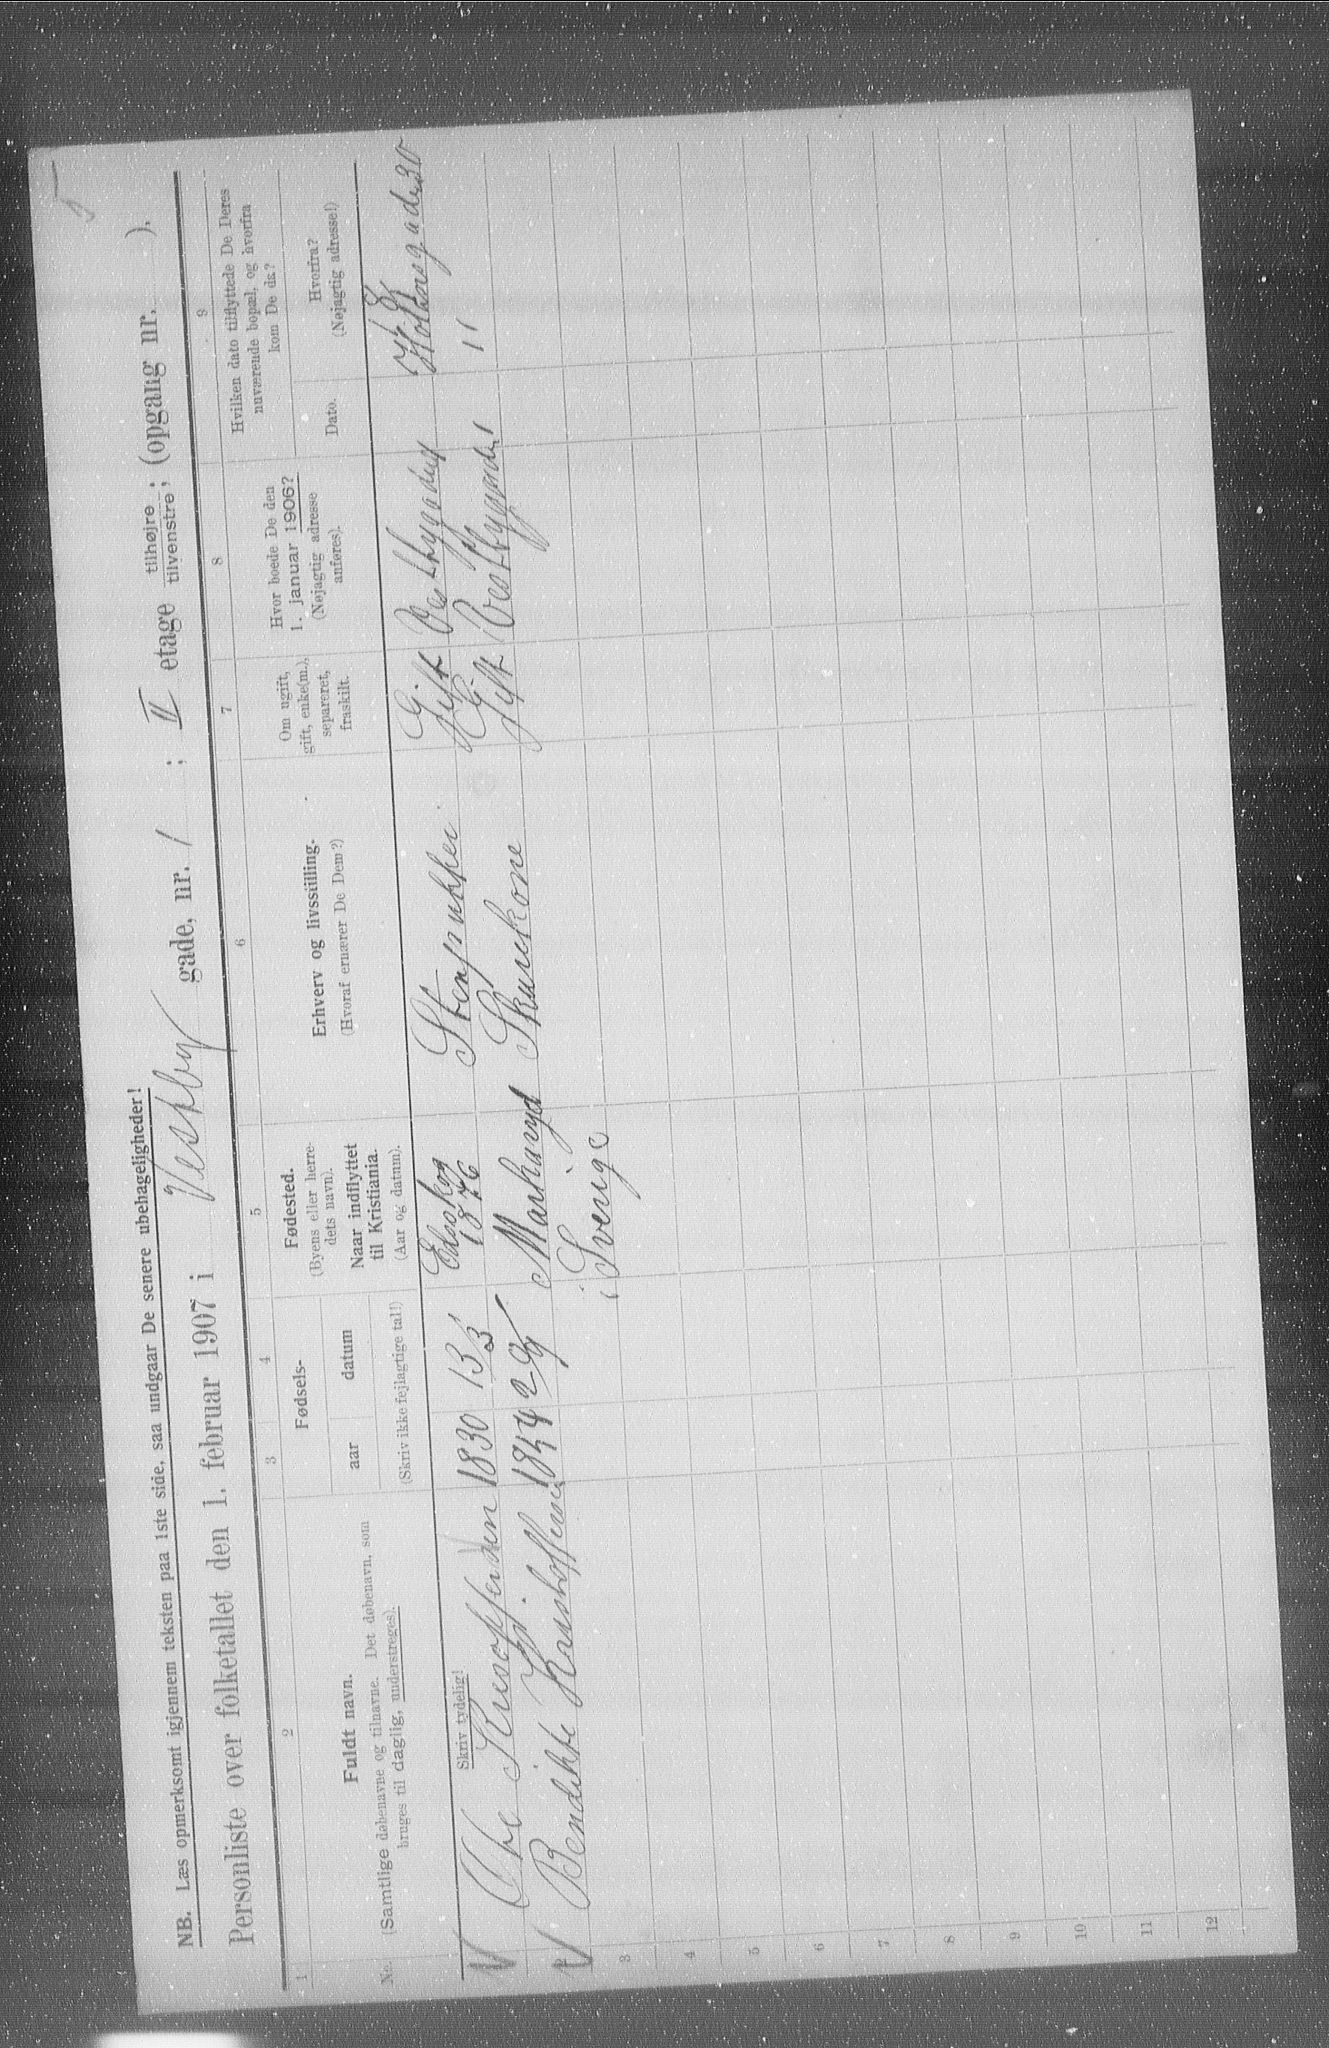 5
NB. Læs opmerksomt igjennem teksten paa 1ste side, saa undgaar De senere ubehageligheder!
Personliste over folketallet den 1. februar 1907 i Vestby gade, nr. 1 ; II etage tilhøjre ; tilvenstre ; (opgang nr. ).
1 2 3 4 5 6 7 8 9
No.
Fuldt navn.
(Samtlige døbenavne og tilnavne. Det døbenavn, som
bruges til daglig, understreges).
Skriv tydelig!
Fødsels-
aar datum
(Skriv ikke fejlagtige tal!)
Fødested.
(Byens eller herre-
dets navn).
Naar indflyttet
til Kristiania.
(Aar og datum).
Erhverv og livsstilling.
(Hvoraf ernærer De Dem?)
Om ugift,
gift, enke(m.),
separeret,
fraskilt.
Hvor boede De den
1. januar 1906?
(Nøjagtig adresse
anføres).
Hvilken dato tilflyttede De Deres
nuværende bopæl, og hvorfra
kom De da?
Dato.
Hvorfra?
(Nøjagtig adresse!)
1830 13/3 Edsskog Stenpukker Gift Vestbygade 30
1876
Bendikte Kristoffersen 1844 Markaryd Skurekone Gift Vestbygade 1 "
i Sverige
3
4
5
6
7
8
9
10
11
12